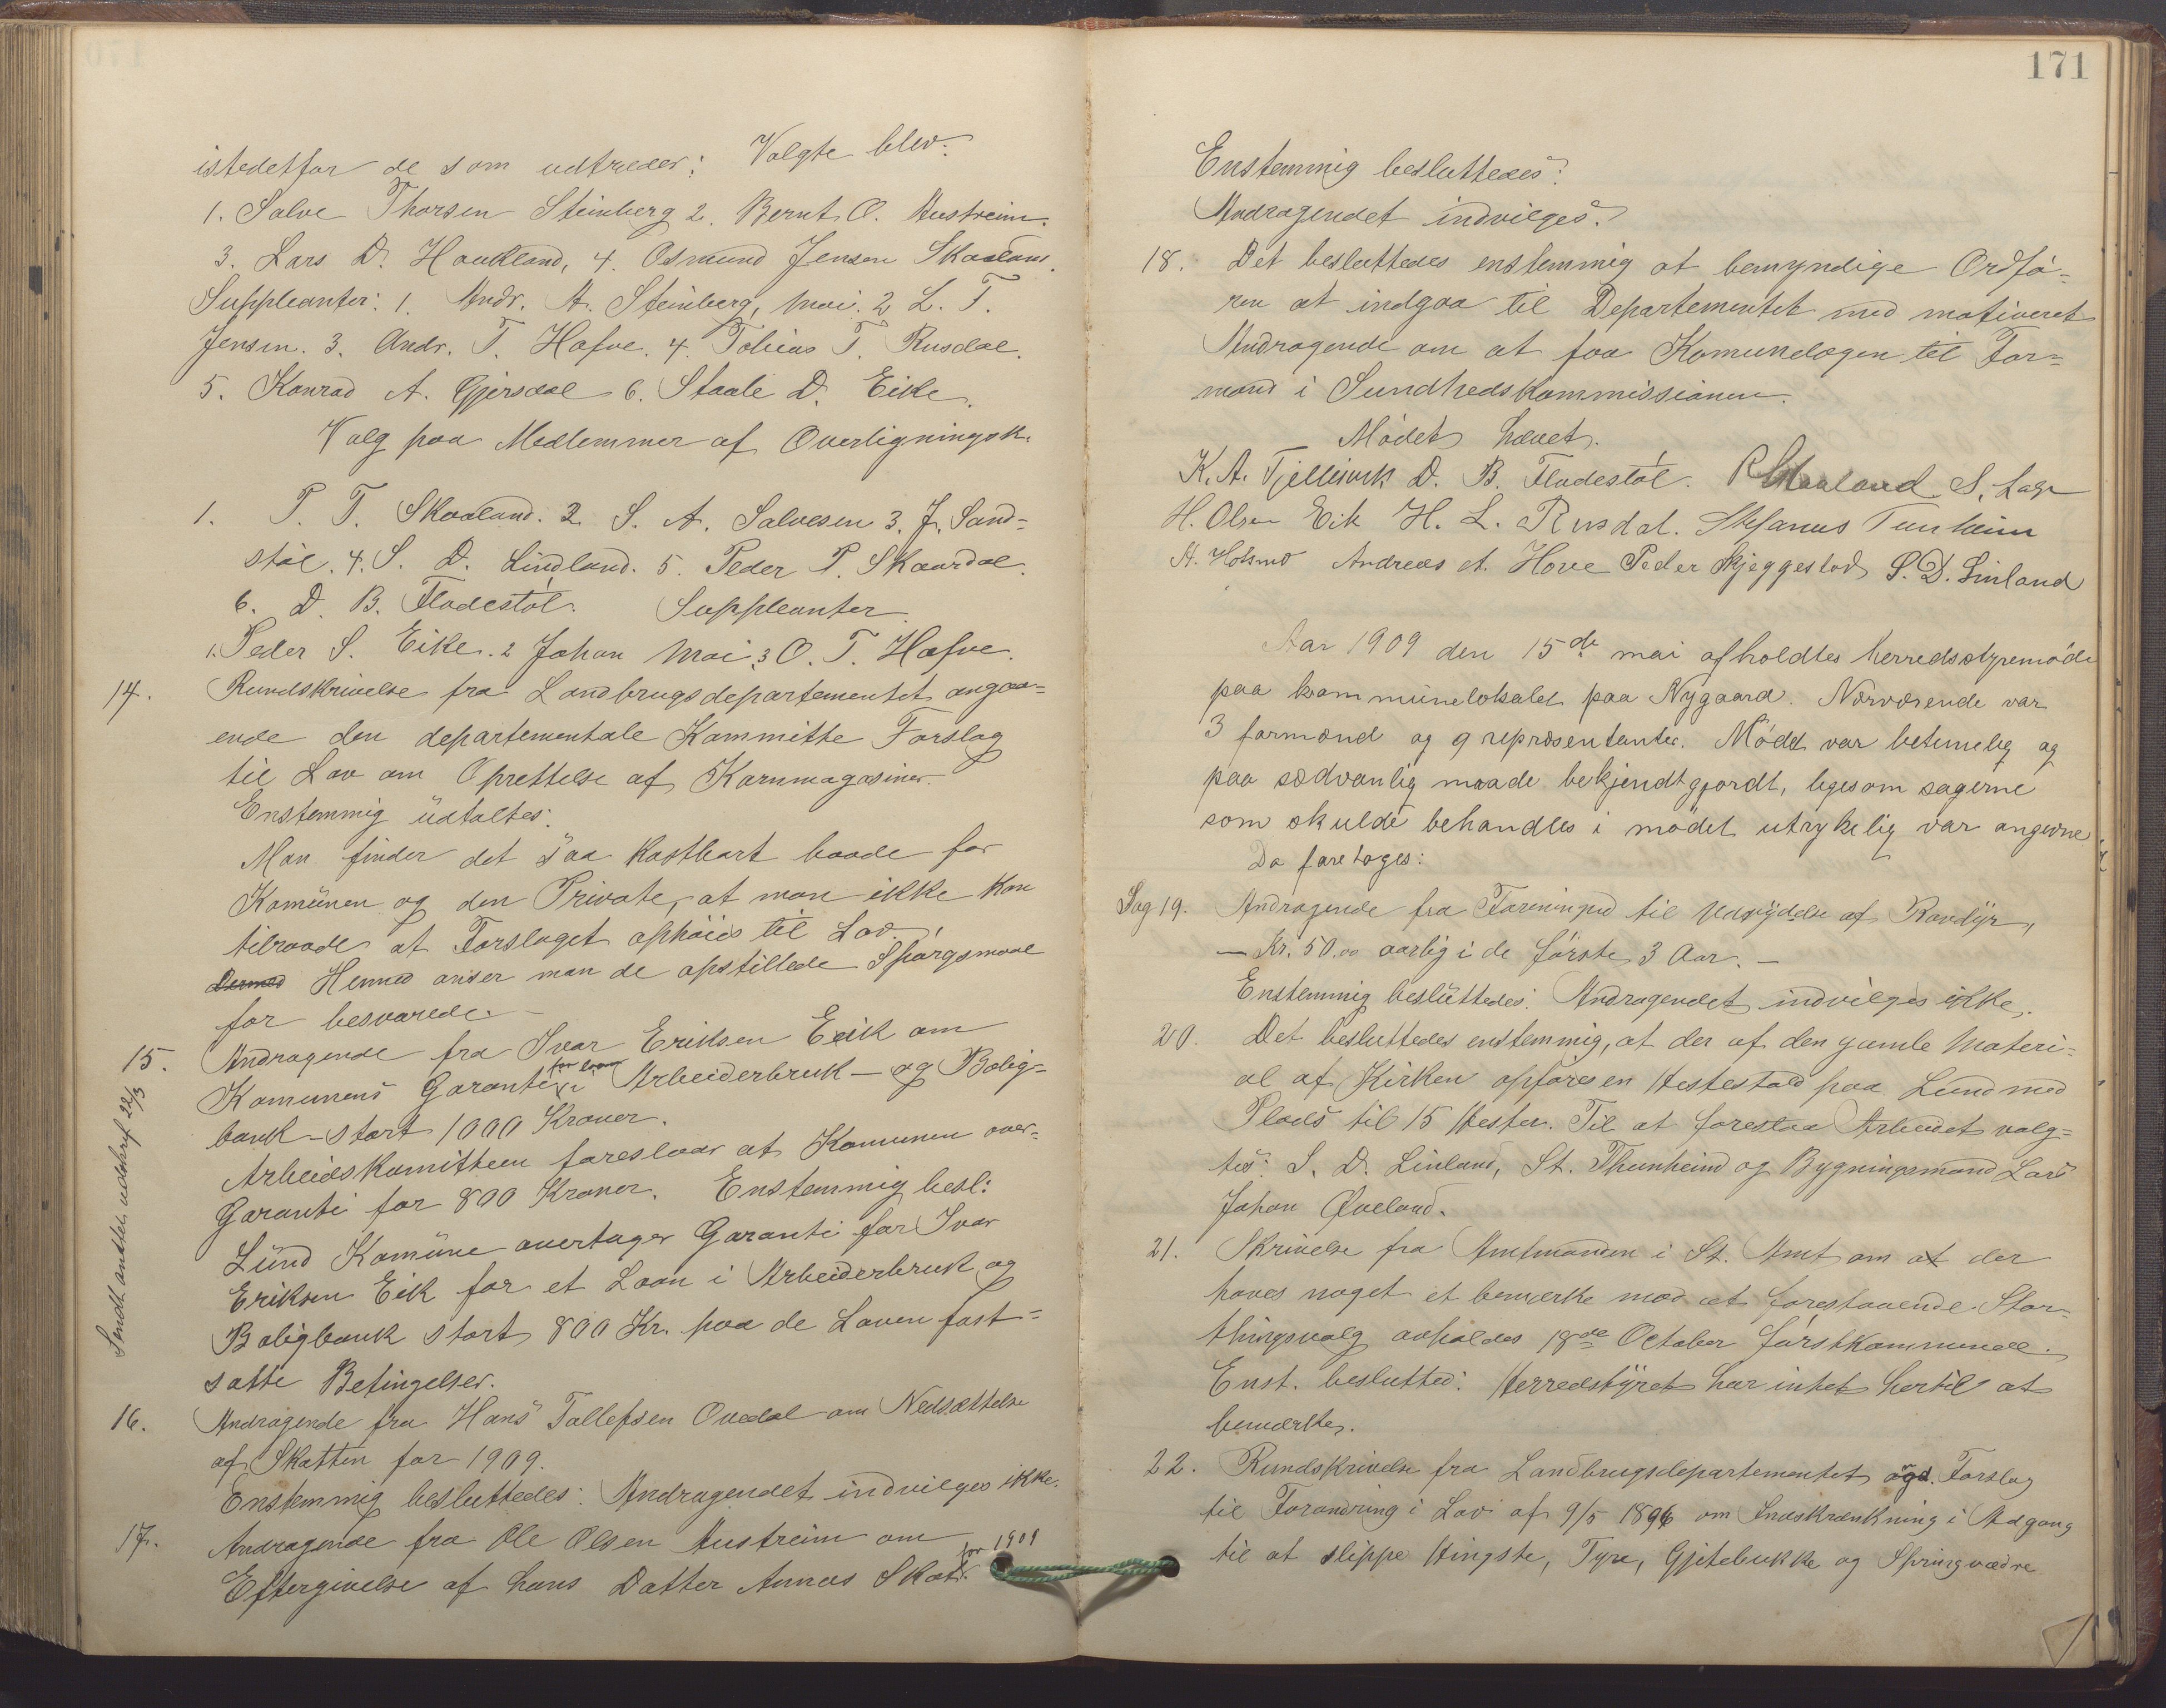 istedetfor de som udtræder: Valgte blev:
1. Salve Thorsen Steinberg 2. Bernt O. Austreim.
3. Lars D. Haukland, 4. Osmund Jensen Skaaland.
Suppleanter: 1. Andr. A. Steinberg, Moi. 2 L. T.
Jensen. 3. Andr. T. Hafve. 4. Tobias T. Rusdal.
5. Konrad A. Gjersdal 6. Staale D. Eike.
Valg paa Medlemmer af Overligningsk.
1. P. T. Skaaland. 2 S. A. Salvesen 3. J. Sand-
støl. 4. S. D. Lindland. 5. Peder P. Skaardal.
6. D. B. Fladestøl. Suppleanter
1. Peder S. Eike. 2 Johan Moi. 3 O. T. Hafve.
14. Rundskrivelse fra Landbrugsdepartementet angaa-
ende den departementale Kommitte Forslag
til Lov om Oprettelse af Kornmagasiner.
Enstemmig udtaltes:
Man finder det saa kostbart baade for
Komünen og den Private, at man ikke kan
tilraade at Forslaget ophøies til Lov.
Dermed Hermed anser man de opstillede Spørgsmaal
for besvarede.
15. Andragende fra Ivar Eriksen Eeik om
Komunens Garanti for laan i Arbeiderbruk- og Bolig-
bank - stort 1000 Kroner.
Arbeidskomitteen foreslaar at Komunen over-
Garanti for 800 Kroner. Enstemmig besl:
Lünd Komüne overtager Garanti for Ivar
Eriksen Eik for et Laan i Arbeiderbruk og
Boligbank stort 800 Kr. paa de Loven fast-
satte Betingelser.
Sendt anttet udskrif 22/3
16. Andragende fra Hans Tallefsen Ovedal om Nedsættelse
af Skatten for 1909.
Enstemmig besluttedes: Andragendet indvilges ikke.
17. Andragende fra Ole Olsen Austreim om
Eftergivelse af hans Datter Annas Skat for 1909
171
Enstemmig besluttedes:
Andragendet indvilges.
18. Det besluttedes enstemmig at bemyndige Ordfø-
ren at indgaa til Departementet med motiveret
Andragende om at faa Komunelægen til For-
mand i Sundhedskommissionen.
Mødet hævet.
K. A. Fjellesvik D. B. Fladestøl. Skaaland S.
H. Olsen Eik H. L. Rusdal. Stefanus Tunheim
A. Andreas A. Hove Peder Skjeggestad S. D. Linland
Aar 1909 den 15de mai afholdtes herredsstyremøde
paa kommunelokalet paa Nygaard. Nærværende var
3 formænd og 9 repræsentanter. Mødet var betimelig og
paa sædvanlig maade bekjendtgjordt, ligesom sagerne
som skulde behandles i mødet utrykelig var angivne
Da foretoges:
Sag 19. Andragende fra Foreningen til Udrydelse af Rovdyr,
— Kr. 50.00 aarlig i de første 3 Aar. —
Enstemmig besluttedes: Andragendet indvilges ikke.
20. Det besluttedes enstemmig, at der af den gamle Materi-
al af Kirken opføres en Hestestald paa Lund med
Plads til 15 Hester. Til at forestaa Arbeidet valg-
tes: S. D. Linland, St. Thunheim og Bygningsmand Lars
Johan Øveland.
21. Skrivelse fra Amtmanden i St. Amt om at der
haves noget at bemerke mod at forestaaende Stor-
thingsvalg avholdes 18de October førstkommende.
Enst. besluttes: Herredstyret har intet hertil at
bemerke.
22. Rundskrivelse fra Landbrugsdepartementet agd. Forslag
til Forandring i Lov af 9/5 1896 om Indskrænkning i Adgang
til at slippe Hingste, Tyre, Gjitebukke og Springvædre